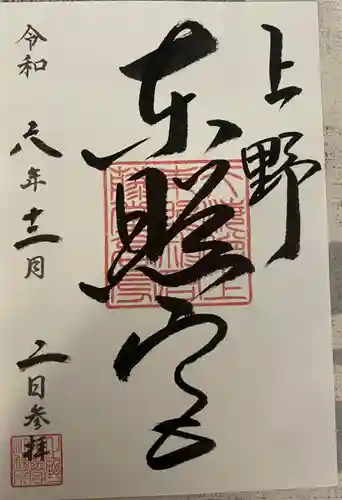 上野
東照宮
令和
六年
十二月
二日参拝